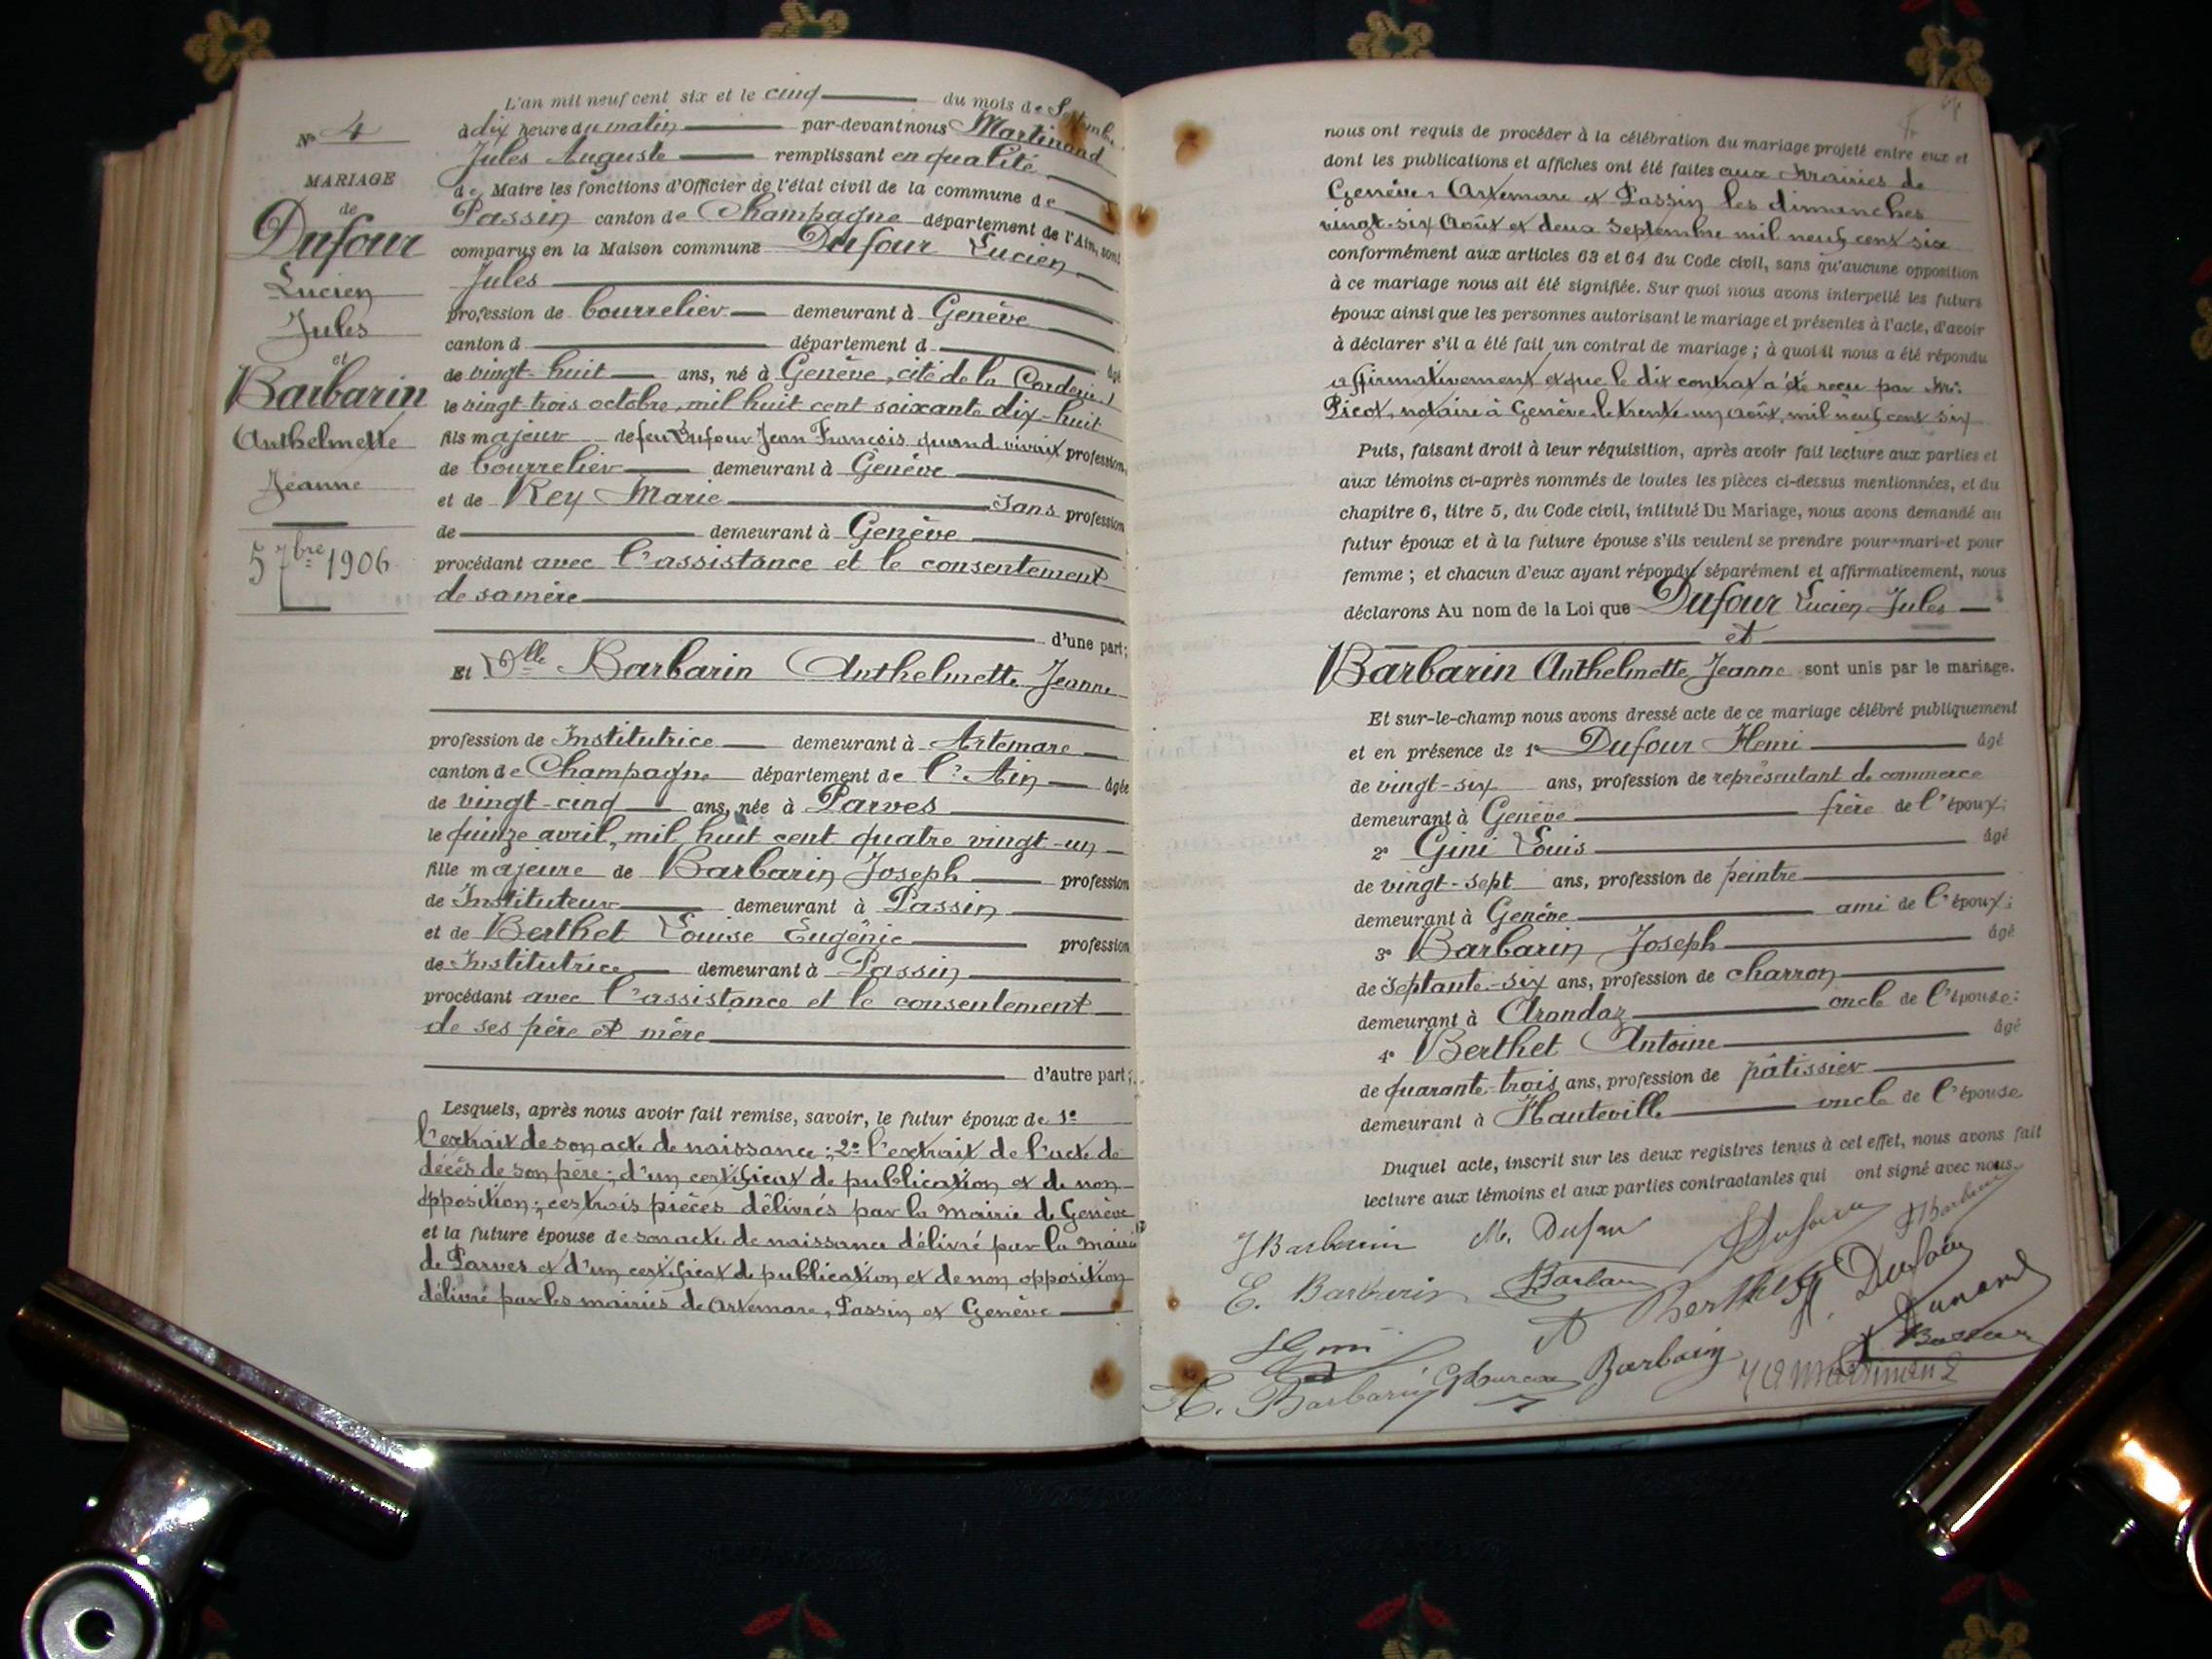 N° 4
MARIAGE
de
Dufour
Lucien
Jules
et
Barbarin
Anthelmette
Jeanne
5 7bre 1906
L'an mil neuf cent six et le cinq du mois de Septembre
à dix heure du matin par-devant nous Martinand
Jules Auguste remplissant en qualité
de Maire les fonctions d'Officier de l'état civil de la commune de
Passin canton de Champagne département de l'Ain, sont
comparus en la Maison commune Dufour Lucien
Jules
profession de bourrelier demeurant à Genève
canton d département d âgé
de vingt-huit ans, né à Genève, cité de la Corderie,
le vingt-trois octobre, mil huit cent soixante dix-huit
fils majeur de feu Dufour Jean François quand vivait profession
de bourrelier demeurant à Genève
et de Rey Marie Sans profession
de demeurant à Genève
procédant avec l'assistance et le consentement
de sa mère
d'une part;
Et Dlle Barbarin Anthelmette Jeanne
profession de Institutrice demeurant à Artemare
canton de Champagne département de l'Ain âgée
de vingt-cinq ans, née à Parves
le quinze avril, mil huit cent quatre vingt-un
fille majeure de Barbarin Joseph profession
de Instituteur demeurant à Passin
et de Berthet Louise Eugénie profession
de Institutrice demeurant à Passin
procédant avec l'assistance et le consentement
de ses père et mère
d'autre part;
Lesquels, après nous avoir fait remise, savoir, le futur époux de 1°
l'extrait de son acte de naissance; 2° l'extrait de l'acte de
décès de son père; d'un certificat de publication et de non-
opposition; ces trois pièces délivrés par la mairie de Genève
et la future épouse de son acte de naissance délivré par la mairie
de Parves et d'un certificat de publication et de non opposition
délivré par les mairies de Artemare, Passin et Genève
nous ont requis de procéder à la célébration du mariage projeté entre eux et
dont les publications et affiches ont été faites aux mairies de
Genève, Artemare et Passin les dimanches
vingt-six Août et deux Septembre mil neuf cent six
conformément aux articles 63 et 64 du Code civil, sans qu'aucune opposition
à ce mariage nous ait été signifiée. Sur quoi nous avons interpellé les futurs
époux ainsi que les personnes autorisant le mariage et présentes à l'acte, d'avoir
à déclarer s'il a été fait un contrat de mariage; à quoi il nous a été répondu
affirmativement et que le dix contrat a été reçu par Mr.
Picot, notaire à Genève le trente-un août, mil neuf cent six
Puis, faisant droit à leur réquisition, après avoir fait lecture aux parties et
aux témoins ci-après nommés de toutes les pièces ci-dessus mentionnées, et du
chapitre 6, titre 5, du Code civil, intitulé Du Mariage, nous avons demandé au
futur époux et à la future épouse s'ils veulent se prendre pour mari et pour
femme; et chacun d'eux ayant répondu séparément et affirmativement, nous
déclarons Au nom de la Loi que Dufour Lucien Jules
et
Barbarin Anthelmette Jeanne sont unis par le mariage.
Et sur-le-champ nous avons dressé acte de ce mariage célébré publiquement
et en présence de 1° Dufour Henri âgé
de vingt-six ans, profession de représentant de commerce
demeurant à Genève frère de l'époux;
2° Gini Louis âgé
de vingt-sept ans, profession de peintre
demeurant à Genève ami de l'époux;
3° Barbarin Joseph âgé
de septante-six ans, profession de charron
demeurant à Arandaz oncle de l'épouse;
4° Berthet Antoine âgé
de quarante-trois ans, profession de pâtissier
demeurant à Hauteville oncle de l'épouse
Duquel acte, inscrit sur les deux registres tenus à cet effet, nous avons fait
lecture aux témoins et aux parties contractantes qui ont signé avec nous.
J Barbarin M. Dufour LDufour J Barbarin
E. Barbarin Barbarin A Berthet H. Dufour
LGini Dunand
A. Barbarin Barbarin JA Martinand